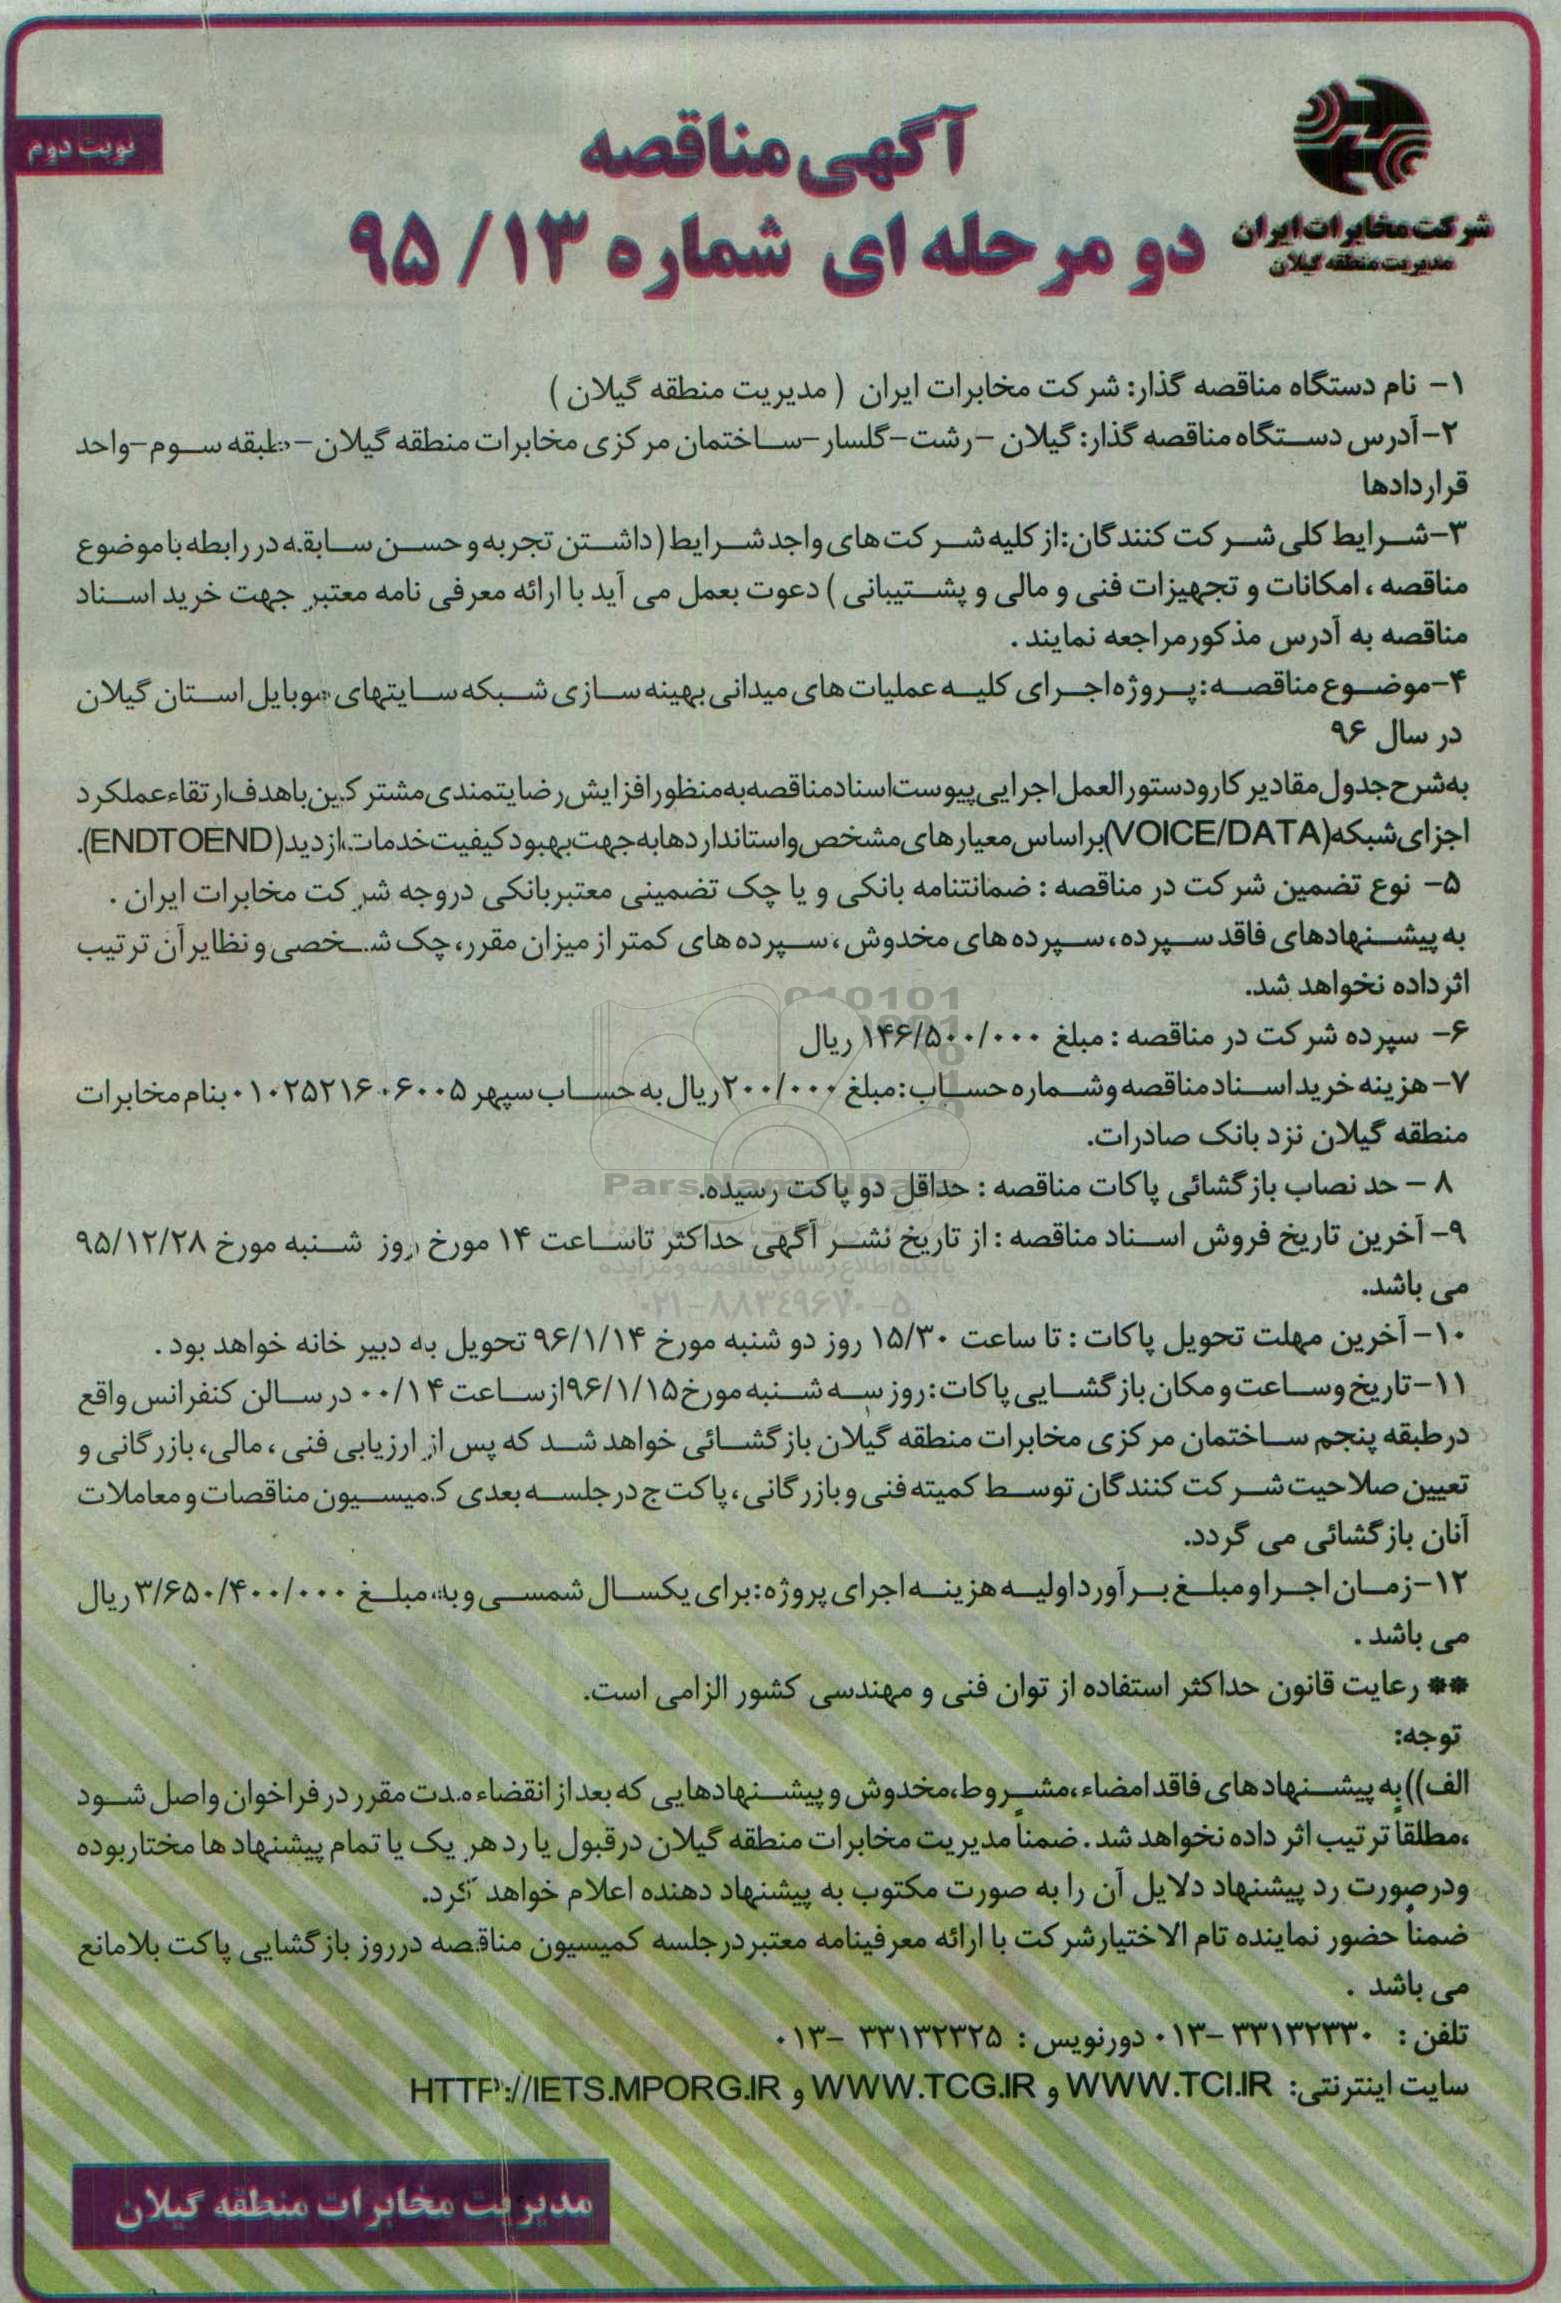 نوبت دوم
آگهی مناقصه
دو مرحله ای شماره ۹۵/۱۳
شرکت مخابرات ایران
مدیریت منطقه گیلان
۱- نام دستگاه مناقصه گذار: شرکت مخابرات ایران ( مدیریت منطقه گیلان )
۲-آدرس دستگاه مناقصه گذار: گیلان -رشت-گلسار-ساختمان مرکزی مخابرات منطقه گیلان-طبقه سوم-واحد
قراردادها
۳-شرایط کلی شرکت کنندگان:از کلیه شرکت های واجد شرایط (داشتن تجربه و حسن سابقه در رابطه با موضوع
مناقصه ، امکانات و تجهیزات فنی و مالی و پشتیبانی ) دعوت بعمل می آید با ارائه معرفی نامه معتبر جهت خرید اسناد
مناقصه به آدرس مذکورمراجعه نمایند .
۴-موضوع مناقصه: پروژه اجرای کلیه عملیات های میدانی بهینه سازی شبکه سایتهای موبایل استان گیلان
در سال ۹۶
به شرح جدول مقادیر کار و دستورالعمل اجرایی پیوست اسناد مناقصه به منظور افزایش رضایتمندی مشترکین با هدف ارتقاء عملکرد
اجزای شبکه (VOICE/DATA) بر اساس معیارهای مشخص و استانداردها به جهت بهبود کیفیت خدمات، از دید (ENDTOEND).
۵- نوع تضمین شرکت در مناقصه : ضمانتنامه بانکی و یا چک تضمینی معتبربانکی دروجه شرکت مخابرات ایران .
به پیشنهادهای فاقد سپرده، سپرده های مخدوش ، سپرده های کمتر از میزان مقرر، چک شخصی و نظایر آن ترتیب
اثر داده نخواهد شد.
۶- سپرده شرکت در مناقصه : مبلغ ۱۴۶/۵۰۰/۰۰۰ ریال
۷- هزینه خرید اسناد مناقصه و شماره حساب: مبلغ ۲۰۰/۰۰۰ ریال به حساب سپهر ۰۱۰۲۵۲۱۶۰۶۰۰۵ بنام مخابرات
منطقه گیلان نزد بانک صادرات.
۸ - حد نصاب بازگشائی پاکات مناقصه : حداقل دو پاکت رسیده.
۹- آخرین تاریخ فروش اسناد مناقصه : از تاریخ نشر آگهی حداکثر تاساعت ۱۴ مورخ روز شنبه مورخ ۹۵/۱۲/۲۸
می باشد.
۱۰- آخرین مهلت تحویل پاکات : تا ساعت ۱۵/۳۰ روز دو شنبه مورخ ۹۶/۱/۱۴ تحویل به دبیر خانه خواهد بود .
۱۱-تاریخ وساعت و مکان بازگشایی پاکات: روز سه شنبه مورخ ۹۶/۱/۱۵ از ساعت ۰۰/۱۴ در سالن کنفرانس واقع
درطبقه پنجم ساختمان مرکزی مخابرات منطقه گیلان بازگشائی خواهد شد که پس از ارزیابی فنی ، مالی، بازرگانی و
تعیین صلاحیت شرکت کنندگان توسط کمیته فنی و بازرگانی، پاکت ج در جلسه بعدی کمیسیون مناقصات و معاملات
آنان بازگشائی می گردد.
۱۲-زمان اجرا و مبلغ برآورد اولیه هزینه اجرای پروژه: برای یکسال شمسی و به مبلغ ۳/۶۵۰/۴۰۰/۰۰۰ ریال
می باشد .
** رعایت قانون حداکثر استفاده از توان فنی و مهندسی کشور الزامی است.
توجه:
الف)) به پیشنهادهای فاقد امضاء ،مشروط،مخدوش و پیشنهادهایی که بعد از انقضاء مدت مقرر در فراخوان واصل شود
،مطلقاً ترتیب اثر داده نخواهد شد . ضمناً مدیریت مخابرات منطقه گیلان در قبول یا رد هر یک یا تمام پیشنهاد ها مختار بوده
ودرصورت رد پیشنهاد دلایل آن را به صورت مکتوب به پیشنهاد دهنده اعلام خواهد کرد.
ضمناً حضور نماینده تام الاختیارشرکت با ارائه معرفینامه معتبردرجلسه کمیسیون مناقصه درروز بازگشایی پاکت بلامانع
می باشد .
تلفن : ۳۳۱۳۲۳۳۰ -۰۱۳ دورنویس : ۳۳۱۳۲۳۲۵ -۰۱۳
سایت اینترنتی: WWW.TCI.IR و WWW.TCG.IR و HTTP://IETS.MPORG.IR
مدیریت مخابرات منطقه گیلان
پایگاه اطلاع رسانی مناقصه و مزایده
۰۲۱-۸۸۳۴۹۶۷۰-۵